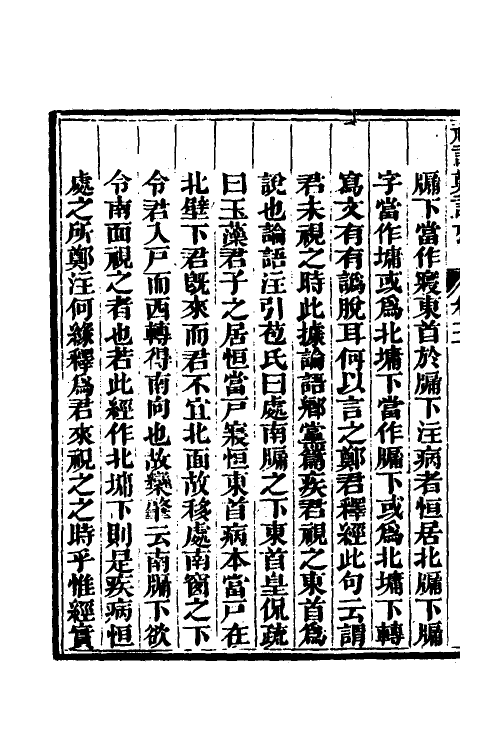 牖下當作寢東首於牖下注病者恒居北牖下牖
字當作墉或爲北墉下當作牖下或爲北墉下轉
寫文有有譌脫耳何以言之鄭君釋經此句云謂
君來視之時此據論語鄉黨篇疾君視之東首爲
說也論語注引苞氏曰處南牖之下東首皇侃疏
曰玉藻君子之居恒當戶寢恒東首病本當戶在
北壁下君旣來而君不宜北面故移處南窗之下
令君入戶而西轉得南向也故欒肇云南牖下欲
令南面視之者也若此經作北墉下則是疾病恒
處之所鄭注何緣釋爲君來視之之時乎惟經實